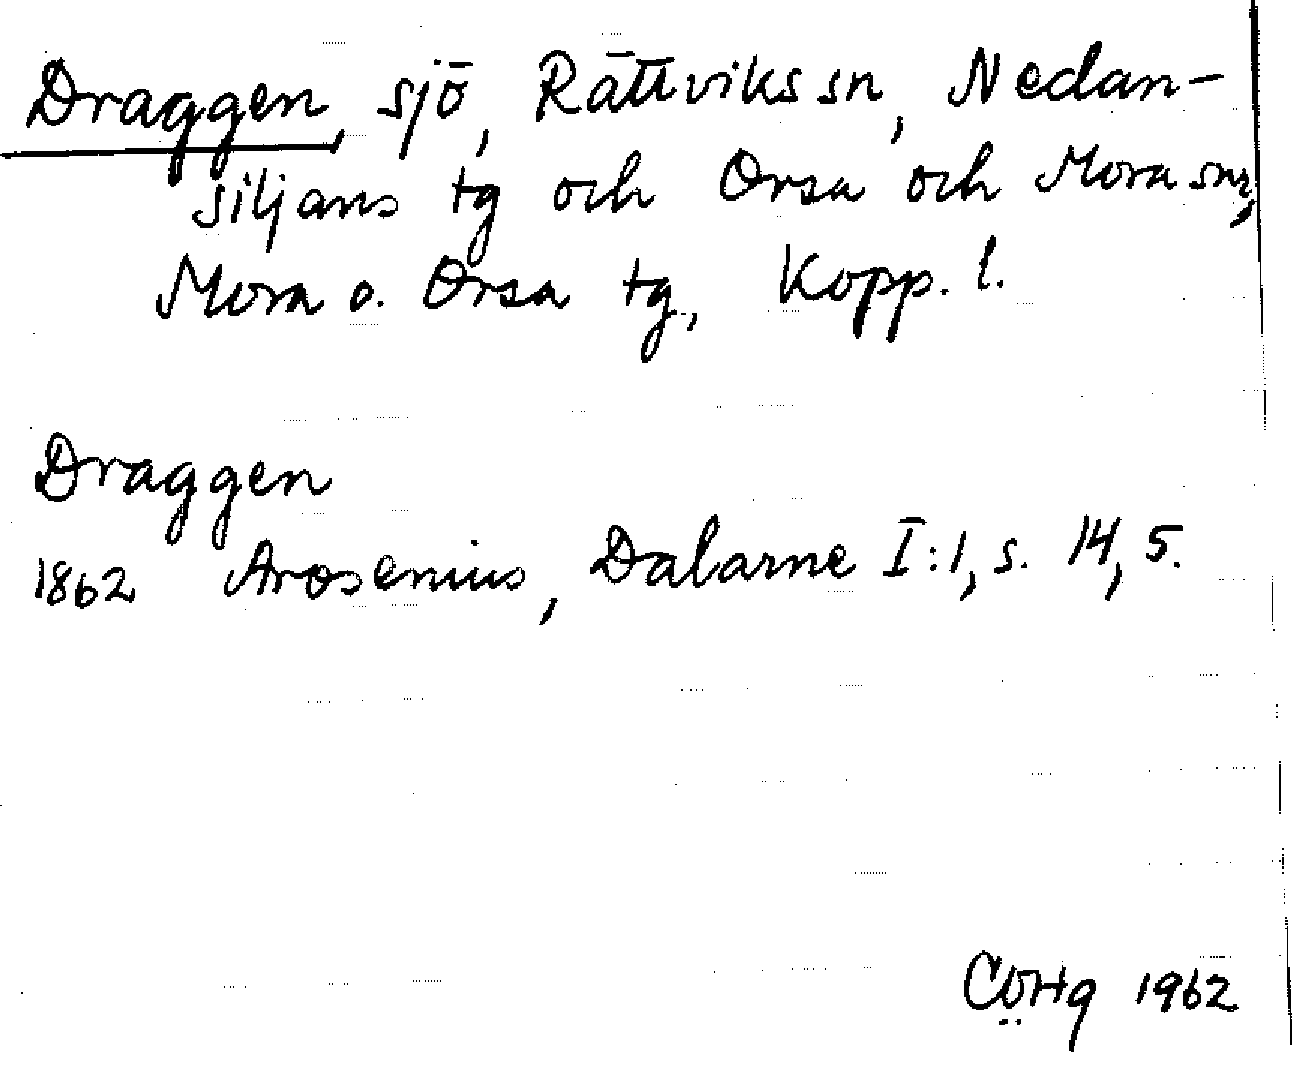 Draggen, sjö, Rättviks sn, Nedan-
siljans tg och Orsa och Mora snr,
Mora o. Orsa tg, Kopp. l.
Draggen
1862 Arosenius, Dalarne I:1, s. 14, 5.
1962